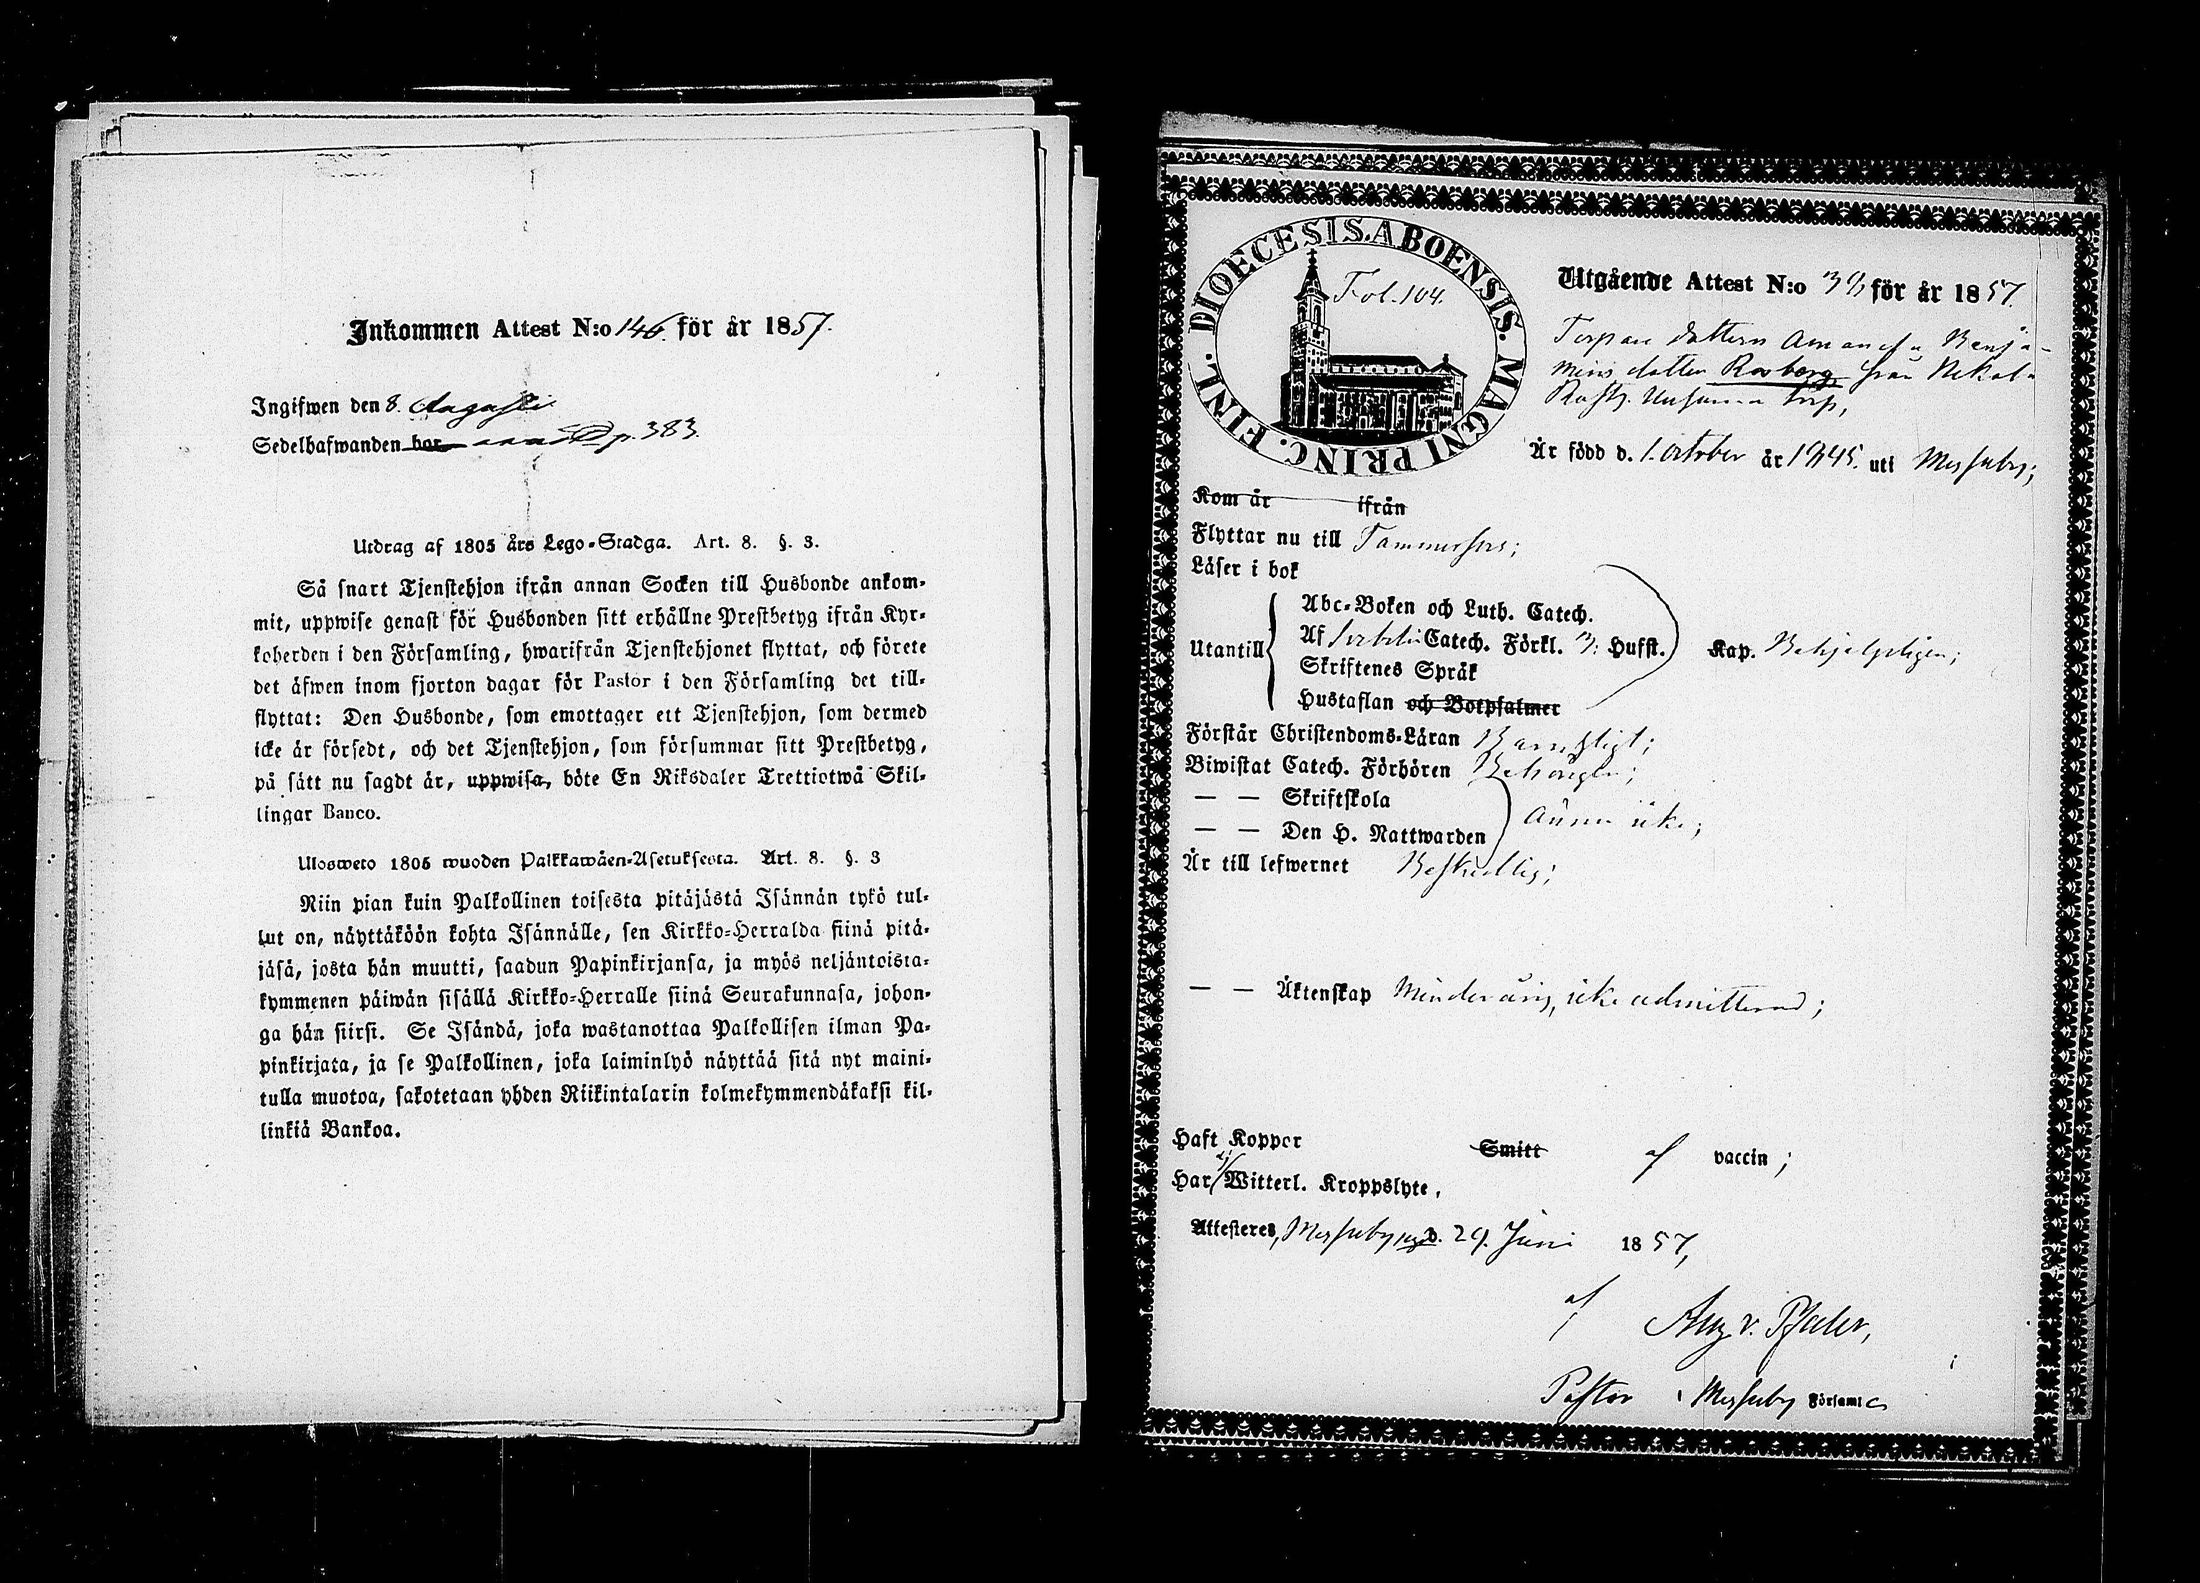 Inkommen Attest N:o 146. för år 1857.
Ingifwen den 8. Augusti
Sedelhafwanden bor p. 383.
Utdrag af 1805 års Lego-Stadga. Art. 8. §. 3.
Så snart Tjenstehjon ifrån annan Socken till Husbonde ankom-
mit, uppwise genast för Husbonden sitt erhållne Prestbetyg ifrån Kyr-
koherden i den Församling, hwarifrån Tjenstehjonet flyttat, och förete
det äfwen inom fjorton dagar för Pastor i den Församling det till-
flyttat: Den Husbonde, som emottager ett Tjenstehjon, som dermed
icke är försedt, och det Tjenstehjon, som försummar sitt Prestbetyg,
på sätt nu sagdt är, uppwisa, böte En Riksdaler Trettiotwå Skil-
lingar Banco.
Ulosweto 1805 wuoden Palkkawäen-Asetuksesta. Art. 8. §. 3
Niin pian kuin Palkollinen toisesta pitäjästä Isännän tykö tul-
lut on, näyttäköön kohta Isännälle, sen Kirkko-Herralda siinä pitä-
jäsä, josta hän muutti, saadun Papinkirjansa, ja myös neljäntoista-
kymmenen päiwän sisällä Kirkko-Herralle siinä Seurakunnasa, johon-
ga hän siirsi. Se Isändä, joka wastanottaa Palkollisen ilman Pa-
pinkirjata, ja se Palkollinen, joka laiminlyö näyttää sitä nyt maini-
tulla muotoa, sakotetaan yhden Riikintalarin kolmekymmendäkaksi kil-
linkiä Bankoa.
DIOECESIS. ABOENSIS. MAGNI PRINC. FINL.
Fol. 104.
Utgående Attest N:o 39 för år 1857.
Torpare dottern Amanda Benja-
mins dotter Rosberg från Nekala
Rusth. torp,
Är född d. 1. October år 1845. uti Messuby;
Kom år ifrån
Flyttar nu till Tammerfors;
Läser i bok
Utantill
Abc-Boken och Luth. Catech.
Af Catech. Förkl. 3: Hufst.
Skriftenes Språk
Hustaflan och Botpsalmer
Kap. Behjelpligen;
Förstår Christendoms-Läran Barnsligt;
Biwistat Catech. Förhören Behörigen;
— — Skriftskola
— — Den H. Nattwarden
ännu icke;
Är till lefwernet Beskedlig;
— — Äktenskap Minderårig, icke admitterad;
Haft Kopper Smitt af vaccin;
Har ej Witterl. Kroppslyte,
Attesteres, Messuby d. 29. Juni 1857,
af
Aug v. Pfaler,
Pastor i Messuby Församl